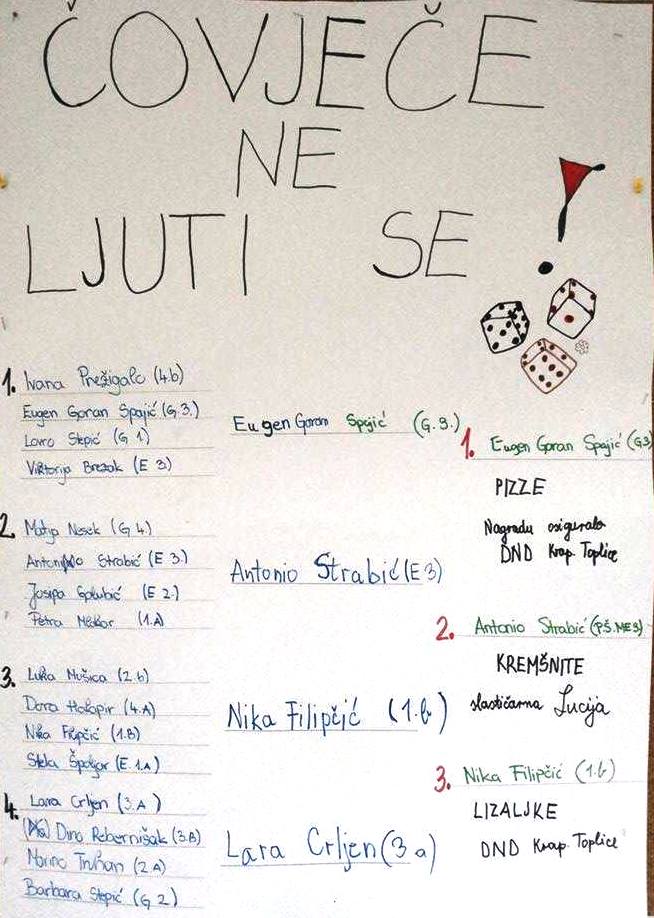 ČOVJEČE
NE
LJUTI SE
1. Ivana Prežigalo (4.b)
Eugen Goran Spajić (G 3.)
Lovro Stepić (G 1)
Viktorija Brezak (E 3)
Eugen Goran Spajić (G.3.)
2. Matija Nosek (G 4)
Antonio Strabić (E 3.)
Josipa Golubić (E 2.)
Petra (1.A)
Antonio Strabić (E3)
3. Luka Mušica (2.b)
Dora (4.A)
Nika Filipčić (1.B)
Stela Špoljar (E.1.A)
Nika Filipčić (1.b)
4. Lara Crljen (3.A)
Dino Rebernišak (3.B)
(2.A)
Barbara Stepić (G 2)
Lara Crljen (3 a)
1. Eugen Goran Spajić (G3)
PIZZE
Nagradu osigurala
DND Krap. Toplice
2. Antonio Strabić (PŠ.ME3)
KREMŠNITE
slastičarna Lucija
3. Nika Filipčić (1.b)
LIZALJKE
DND Krap. Toplice